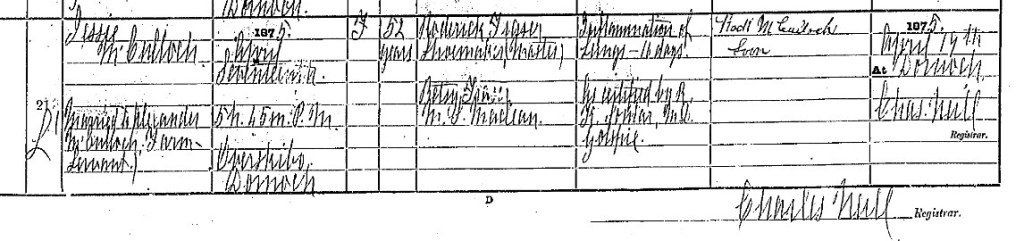 Dornoch.
Jessie
McCulloch
1875.
April
Seventeenth
5h. 45m. P.M.
Dornoch
F
52
years
Roderick Fraser
Shoemaker (Master)
Betsy Fraser
M.S. Maclean.
Inflammation of
Lungs - 10 days.
As certified by
Golspie.
McCulloch
Son
1875.
April 19th
At Dornoch.
Chas. Nill
Registrar.
2
(Married to Alexander
McCulloch, Farm
Servant)
D
Charles Nill
Registrar.